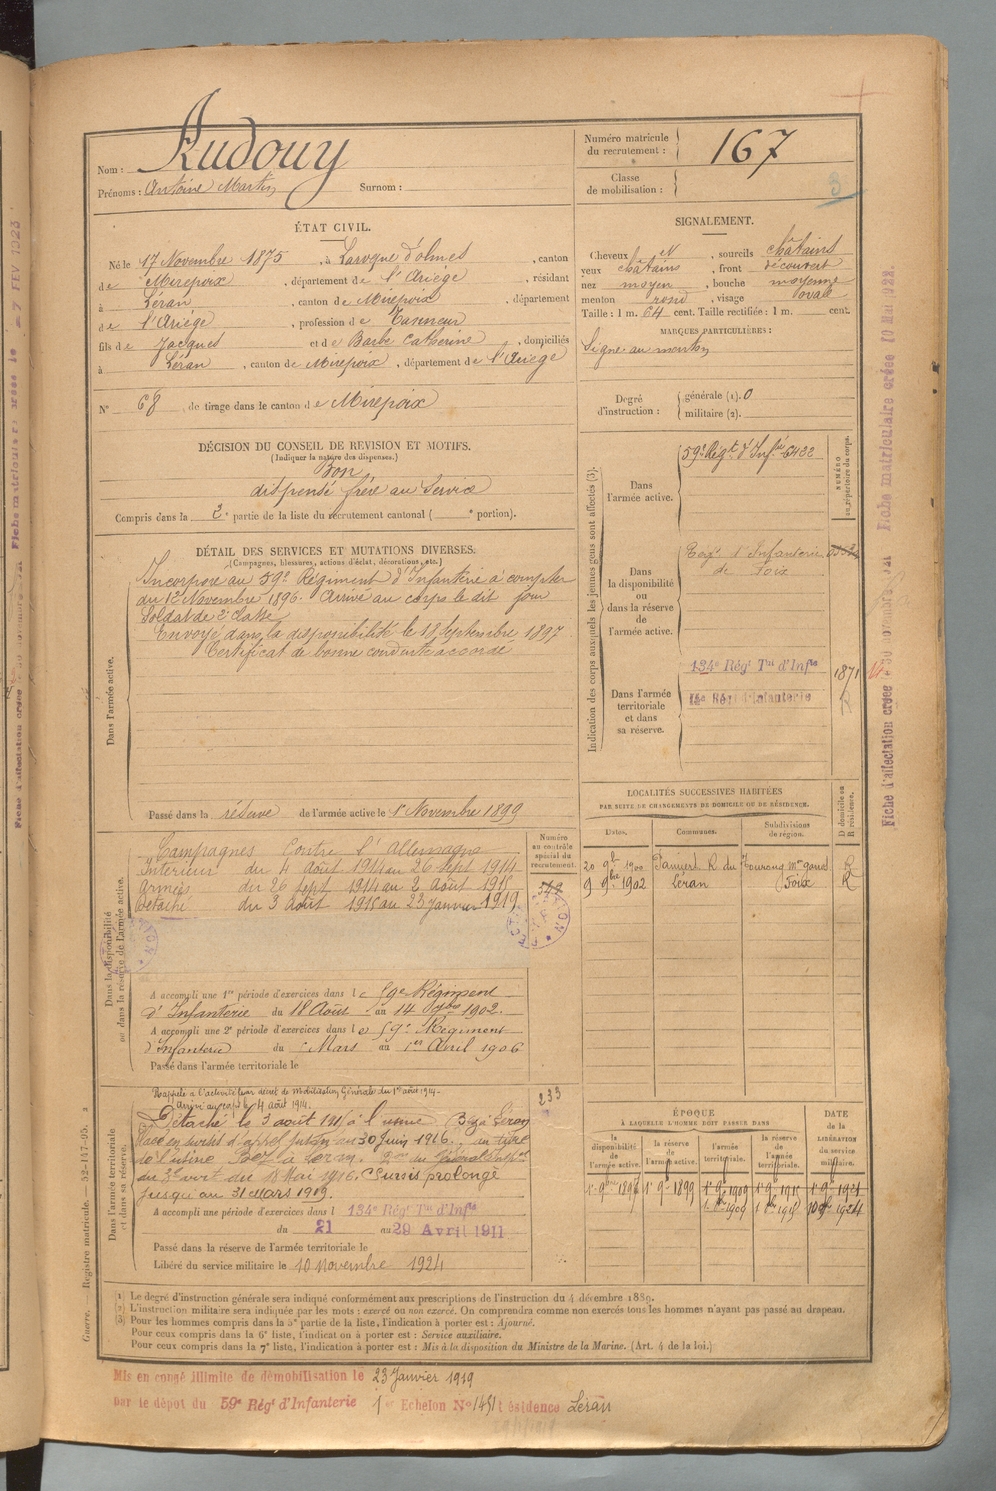 Nom : Audouy
Prénoms : Antoine Martin Surnom :
Numéro matricule du recrutement : 167
Classe de mobilisation :
3
ÉTAT CIVIL.
Né le 17 Novembre 1875, à Laroque d'olmes, canton
de Mirepoix, département de l'Ariége, résidant
à Léran, canton de Mirepoix, département
de l'Ariége, profession de Tanneur
fils de Jacques et de Barbe Catherine, domiciliés
à Léran, canton de Mirepoix, département de l'Ariége
N° 68 de tirage dans le canton de Mirepoix
DÉCISION DU CONSEIL DE REVISION ET MOTIFS.
(Indiquer la nature des dispenses.)
Bon
dispensé frère au Service
Compris dans la 2e partie de la liste du recrutement cantonal ( e portion).
SIGNALEMENT.
Cheveux N, sourcils châtains
yeux châtains, front découvert
nez moyen, bouche moyenne
menton rond, visage oval
Taille : 1 m. 64 cent. Taille rectifiée : 1 m. cent.
MARQUES PARTICULIÈRES :
Signe au menton
Degré d'instruction : générale (1). 0
militaire (2).
DÉTAIL DES SERVICES ET MUTATIONS DIVERSES.
(Campagnes, blessures, actions d'éclat, décorations, etc.)
Dans l'armée active.
Incorporé au 59e Régiment d'Infanterie à compter
du 12 Novembre 1896. Arrivé au corps le dit jour
Soldat de 2e classe
Envoyé dans la disponibilité le 18 Septembre 1897
Certificat de bonne conduite accordé
Passé dans la réserve de l'armée active le 1r Novembre 1899
Indication des corps auxquels les jeunes gens sont affectés (3).
NUMÉRO au répertoire du corps.
Dans l'armée active.
59e Régt d'Infie 5432
Dans la disponibilité ou dans la réserve de l'armée active.
Regt d'Infanterie
de Foix
Dans l'armée territoriale et dans sa réserve.
134e Régt Tal d'Infie
1871
Régt d'Infanterie
LOCALITÉS SUCCESSIVES HABITÉES
PAR SUITE DE CHANGEMENTS DE DOMICILE OU DE RÉSIDENCE.
Dates. Communes. Subdivisions de région. D domicile ou R résidence.
20 9bre 1900 R
9 9bre 1902 Léran Foix R
Dans la disponibilité ou dans la réserve de l'armée active.
Numéro au contrôle spécial du recrutement.
Campagnes Contre l'Allemagne
Intérieur du 4 août 1914 au 26 sept 1914
Armées du 26 sept 1914 au 2 août 1915
Détaché du 3 août 1915 au 23 janvier 1919
A accompli une 1re période d'exercices dans le 59e Régiment
d'Infanterie du 18 Août au 14 7bre 1902.
A accompli une 2e période d'exercices dans le 59e Régiment
d'Infanterie du Mars au 1er Avril 1906
Passé dans l'armée territoriale le
Dans l'armée territoriale et dans sa réserve.
Rappelé à l'activité par décret de Mobilisation Générale du 1er août 1914.
Arrivé au corps le 4 août 1914.
233
Détaché le 3 août 1915 à l'usine Bez à Léran
30 juin 1916. au titre
de l'usine Bez à Léran.
du 18 Mai 1916. Sursis prolongé
jusqu'au 31 mars 1919.
A accompli une période d'exercices dans l 134e Régt Tal d'Infie
du 21 au 29 Avril 1911
Passé dans la réserve de l'armée territoriale le
Libéré du service militaire le 10 Novembre 1924
ÉPOQUE
À LAQUELLE L'HOMME DOIT PASSER DANS
DATE DE LA LIBÉRATION DU SERVICE MILITAIRE.
la disponibilité de l'armée active. la réserve de l'armée active. l'armée territoriale. la réserve de l'armée territoriale.
1r 9bre 1896 1r 9bre 1899 1r 9bre 1909 1r 9bre 1915 1r 9bre 1921
1r 8bre 1909 1r 8bre 1915 10 9bre 1924
1 Le degré d'instruction générale sera indiqué conformément aux prescriptions de l'instruction du 4 décembre 1889.
(2) L'instruction militaire sera indiquée par les mots : exercé ou non exercé. On comprendra comme non exercés tous les hommes n'ayant pas passé au drapeau.
(3) Pour les hommes compris dans la 5e partie de la liste, l'indication à porter est : Ajourné.
Pour ceux compris dans la 6e liste, l'indication à porter est : Service auxiliaire.
Pour ceux compris dans la 7e liste, l'indication à porter est : Mis à la disposition du Ministre de la Marine. (Art. 4 de la loi.)
Mis en congé illimité de démobilisation le 23 Janvier 1919
par le dépôt du 59e Régt d'Infanterie 1er Echelon N° 1451 résidence Léran
Guerre. — Registre matricule. — 52-147-95.
Fiche matriculaire créée 10 Mai 1922.
Fiche d'affectation créée